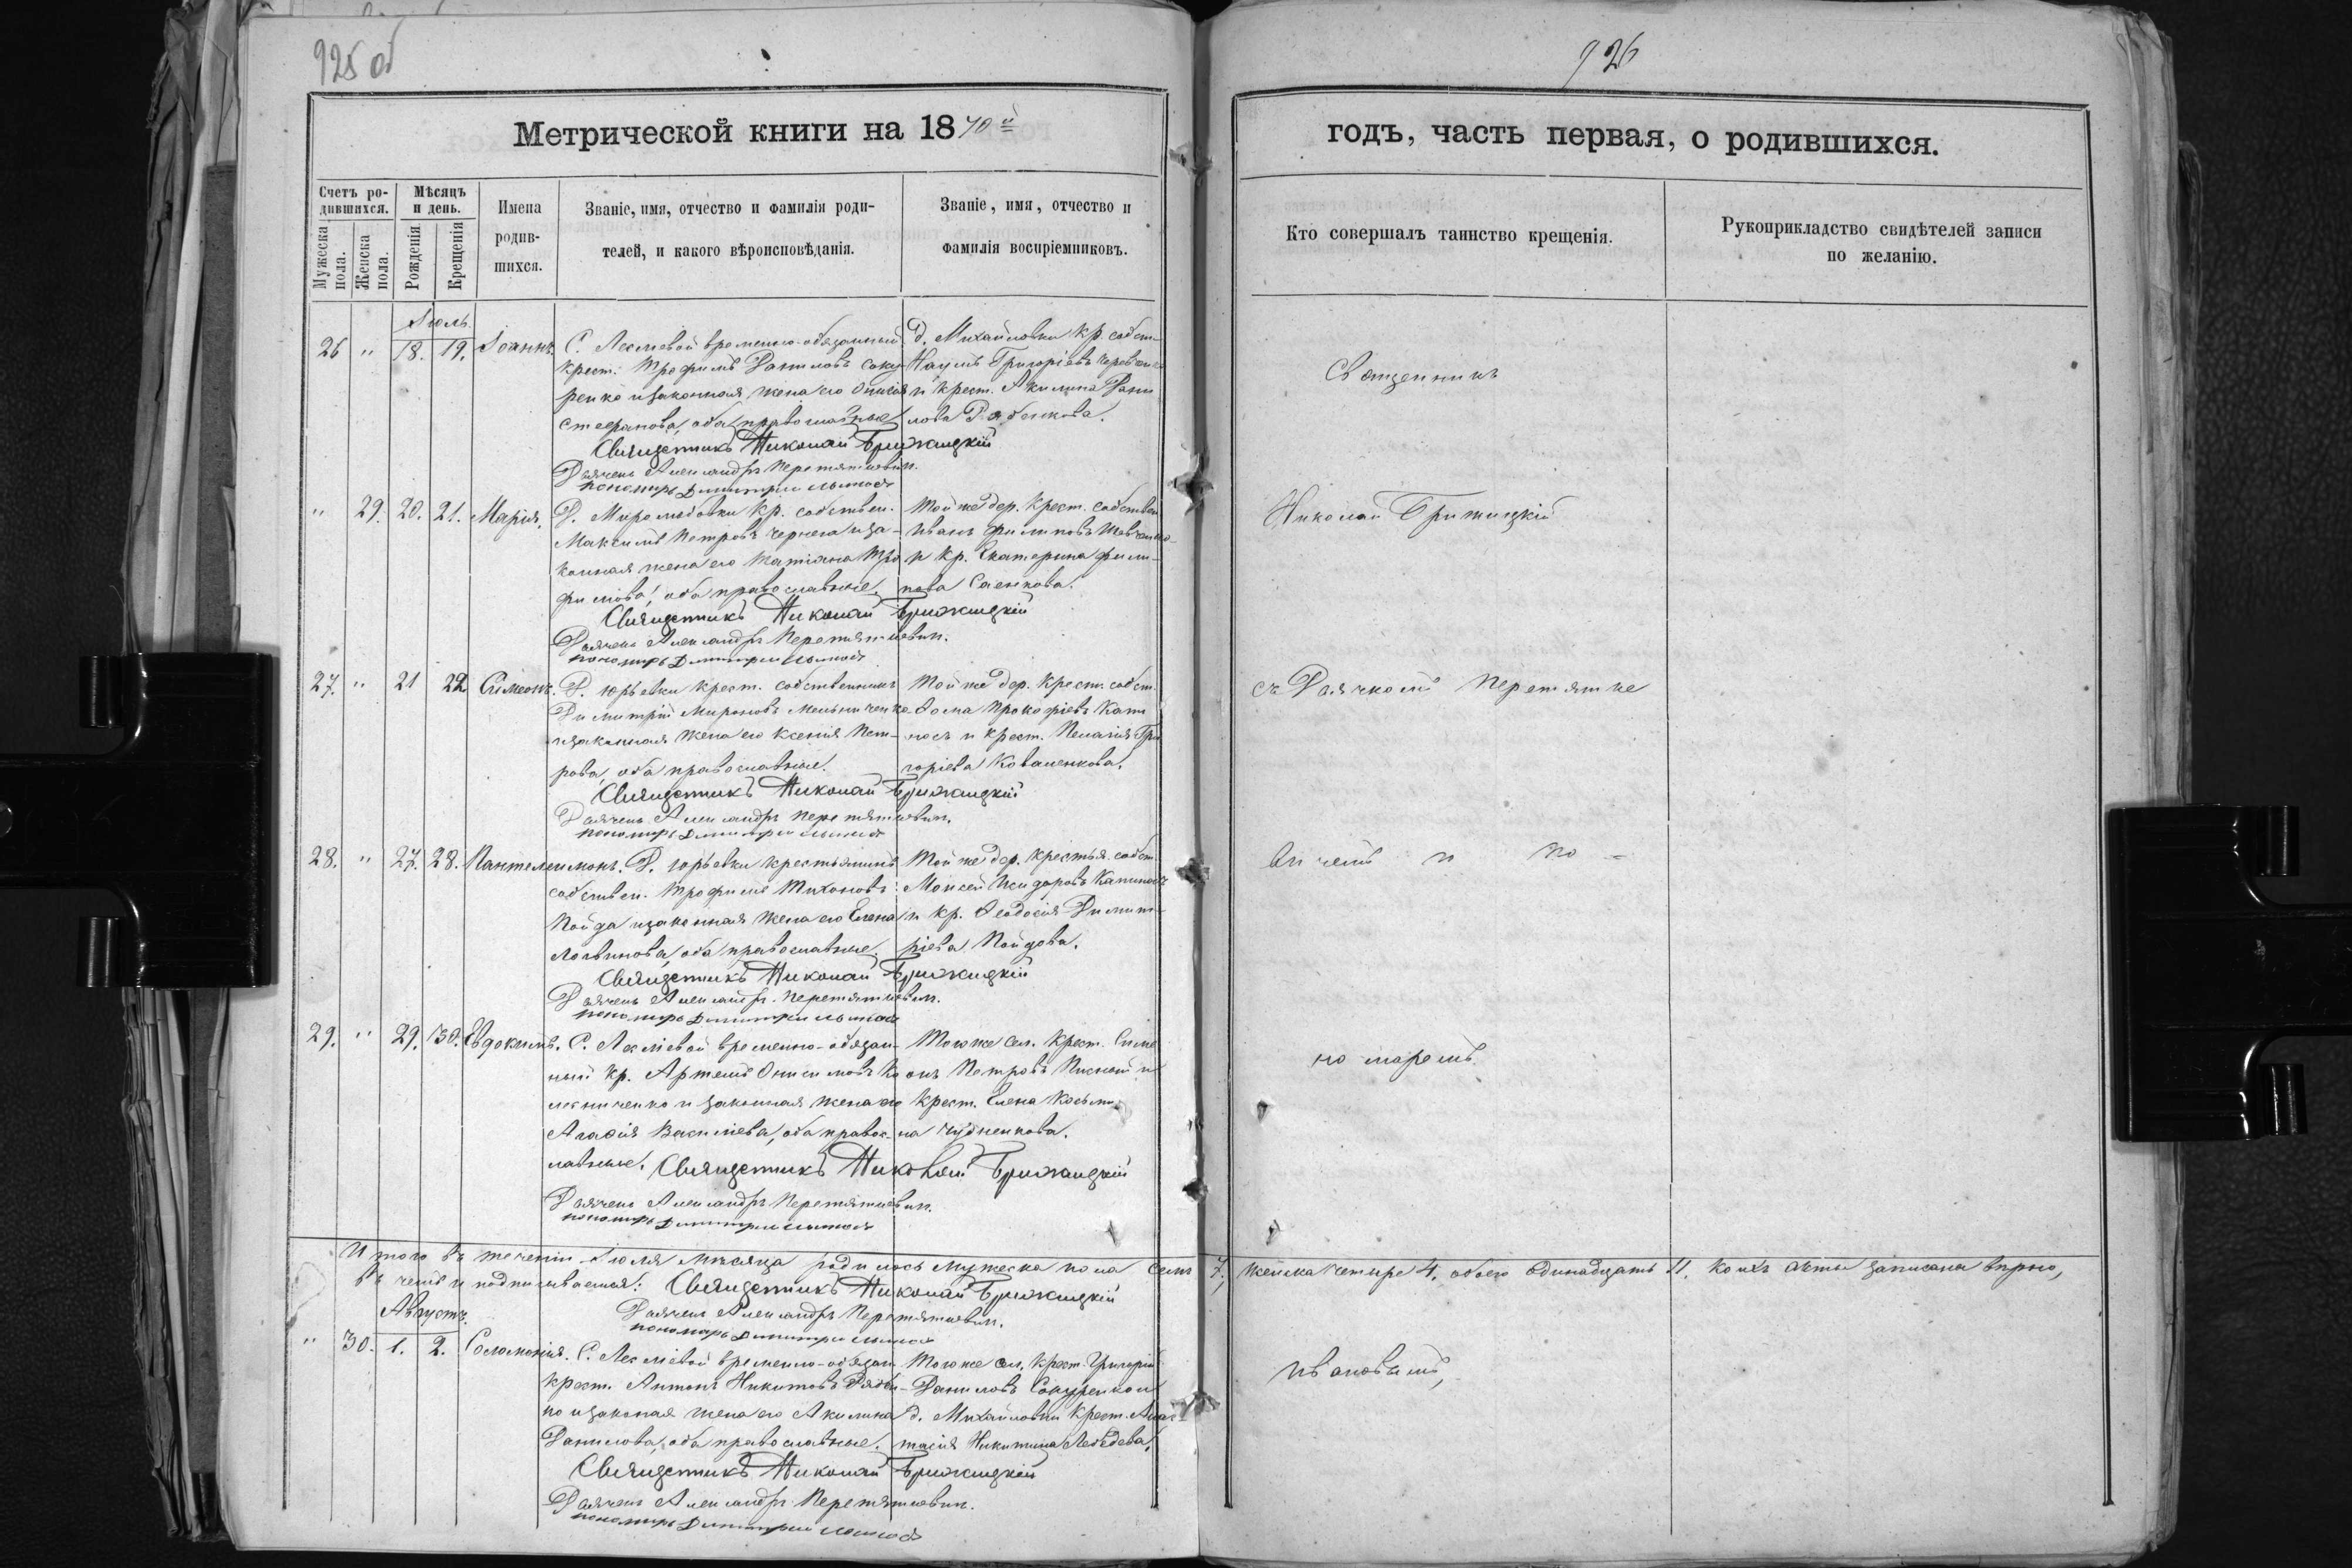 925 об
926
Метрической книги на 1870й
годъ, часть первая, о родившихся.
Счетъ родившихся.
Мѣсяцъ и день.
Мужеска пола.
Женска пола.
Рожденія.
Крещенія
Имена родившихся.
Званіе, имя, отчество и фамилія родителей, и какого вѣроисповѣданія.
Званіе, имя, отчество и фамилія воспріемниковъ.
Кто совершалъ таинство крещенія.
Рукоприкладство свидѣтелей записи по желанію.
Іюль.
26 " 18. 19. Іоаннъ. С. Лесліевой временно-обязанный
крест. Трофимъ Даниловъ Соку
ренко и законная жена его
Стефанова, оба православные
д. Михайловки кр. собст
Наумъ Григоріевъ
и крест. Акилина Дани
лова
Священникъ Николай Брижицкій
Дьячекъ Александръ Перетяткевич.
пономарь Димитрій
" 29. 20. 21. Марія. Д. Миролюбовки кр. собствен.
Максимъ Петровъ Чернега и за-
конная жена его Татіана Тро
фимова, оба православные.
Той же дер. крест. собствен
Иванъ Филиповъ
и кр. Екатерина Фили-
пова Саенкова.
Священникъ Николай Брижицкій
Дьячекъ Александръ Перетяткевич.
пономарь Димитрій
27. " 21 22. Симеонъ. Д. Юрьевки крест. собственникъ
Димитрій Мироновъ Мельниченко
и законная жена его Ксенія Пет-
рова, оба православные.
Той же дер. крест. собст.
Фома Прокофіевъ
и крест. Пелагія Гри
горіева Коваленкова.
Священникъ Николай Брижицкій
Дьячекъ Александръ Перетяткевич.
пономарь Димитрій
28. " 27. 28. Пантелеимонъ. Д. Юрьевки крестьянинъ
собствен. Трофимъ Тихоновъ
Пойда и законная жена его Елена
Логвинова, оба православные.
Той же дер. крестья. собст.
Моисей Исидоровъ
и кр. Феодосія Димит-
ріева Пойдова.
Священникъ Николай Брижицкій
Дьячекъ Александръ Перетяткевич.
пономарь Димитрій
29. " 29. 30. Евдокимъ. С. Лесліевой временно-обязан-
ный кр. Артемъ Онисимовъ Ко
лесниченко и законная жена его
Агафія Василіева, оба правос-
лавные.
Того же сел. крест. Симе
онъ Петровъ
Крест. Елена Косьми
на
Священникъ Николай Брижицкій
Дьячекъ Александръ Перетяткевич.
пономарь Димитрій
Итого въ теченіи Іюля мѣсяца родилось мужеска пола семь 7, женска четыре 4, обоего одинадцать 11. коихъ акты записаны вѣрно,
въ чемъ и подписываемся: Священникъ Николай Брижицкій
Дьячекъ Александръ Перетяткевич.
пономарь Димитрій
Августъ.
" 30. 1. 2. Соломонія. С. Лесліевой временно-обязан
крест. Антонъ Никитовъ
ко и законная жена его Акилина
Данилова, оба православные.
Того же сел. крест. Григорій
Даниловъ Сокуренко и
д. Михайловки крест. Анас-
тасія Никитина Лебедева.
Священникъ Николай Брижицкій
Дьячекъ Александръ Перетяткевич.
пономарь Димитрій
Священникъ
Николай Брижицкій
съ Дьячкомъ Перетятке
вичемъ и по-
номаремъ
Ивановымъ,